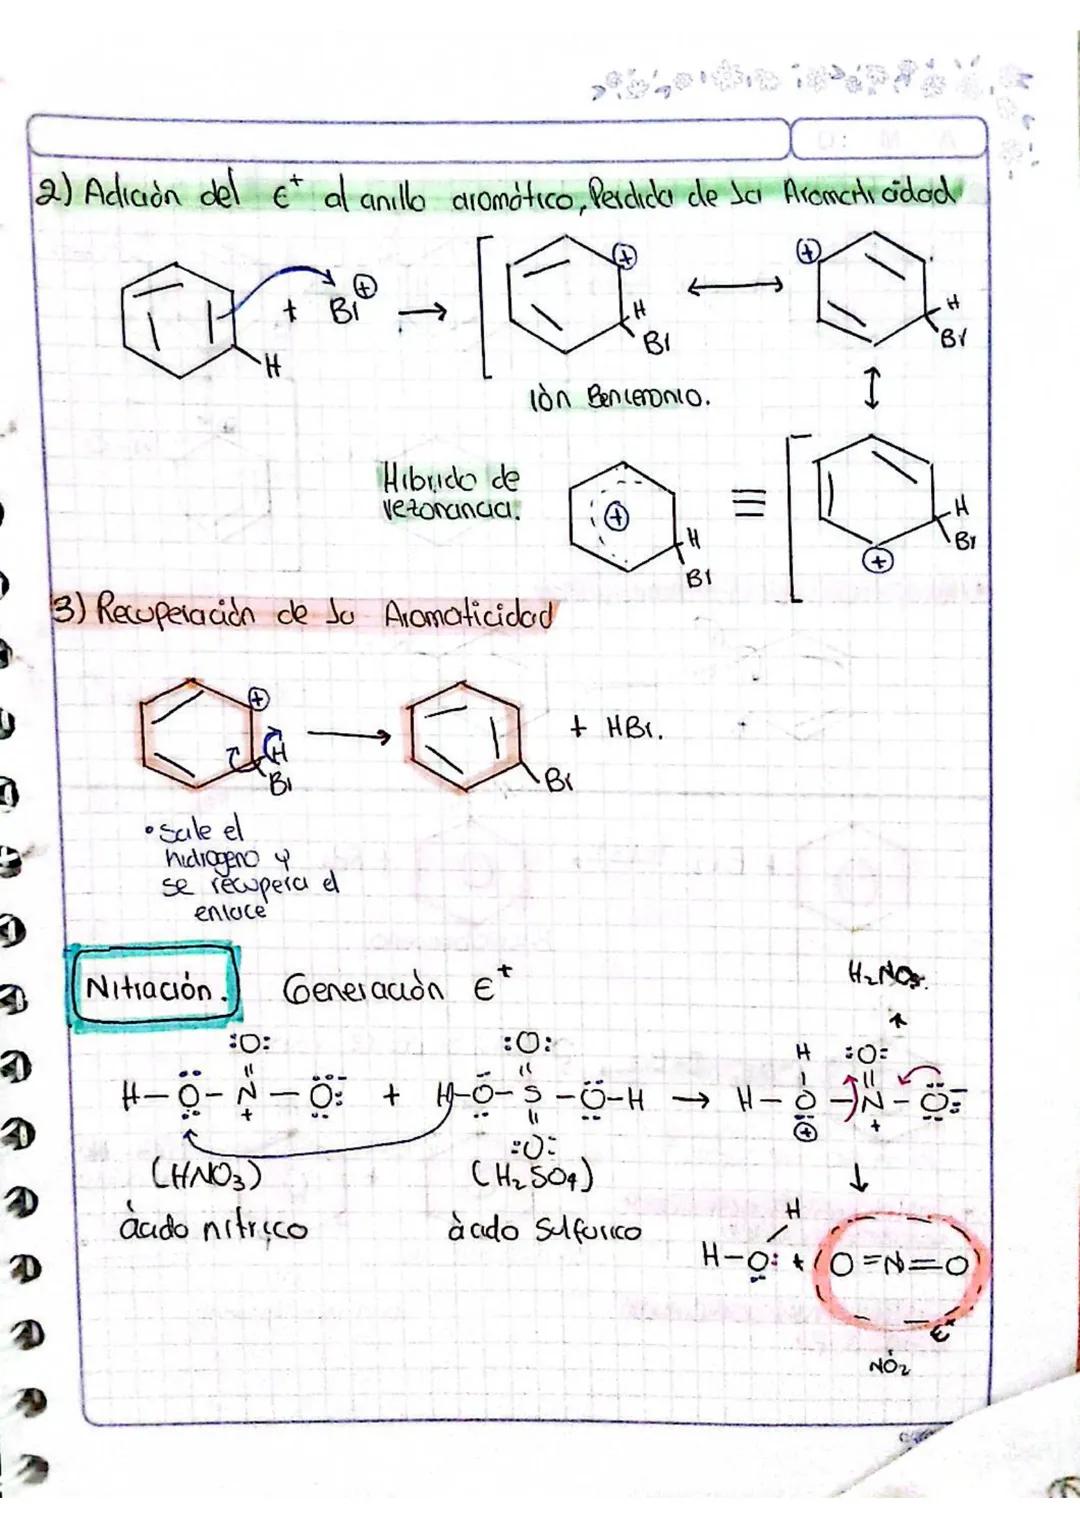 2) Adición del E⁺ al anillo aromático, Perdida de la Aromaticidad
+ Br⊕ → ⊕ ↔ ⊕
H
H
Br
H
Br
ión Bencenonio.
↕
Hibrido de
rezonancia.
⊕ ≡ ⊕
H
Br
H
Br
3) Recuperación de la Aromaticidad
⊕ → + HBr.
H
Br
Br
• Sale el
hidrogeno y
se recupera el
enlace
Nitración. Generación E⁺
H₂NO₃.
:O: :O: H :O:
H-O-N-O: + H-O-S-O-H → H-O-N-O:
+ ⊕ +
:O:
(HNO₃) (H₂SO₄)
ácido nítrico àcido Sulfurico
H
H-O: + (O=N=O)
E⁺
NO₂